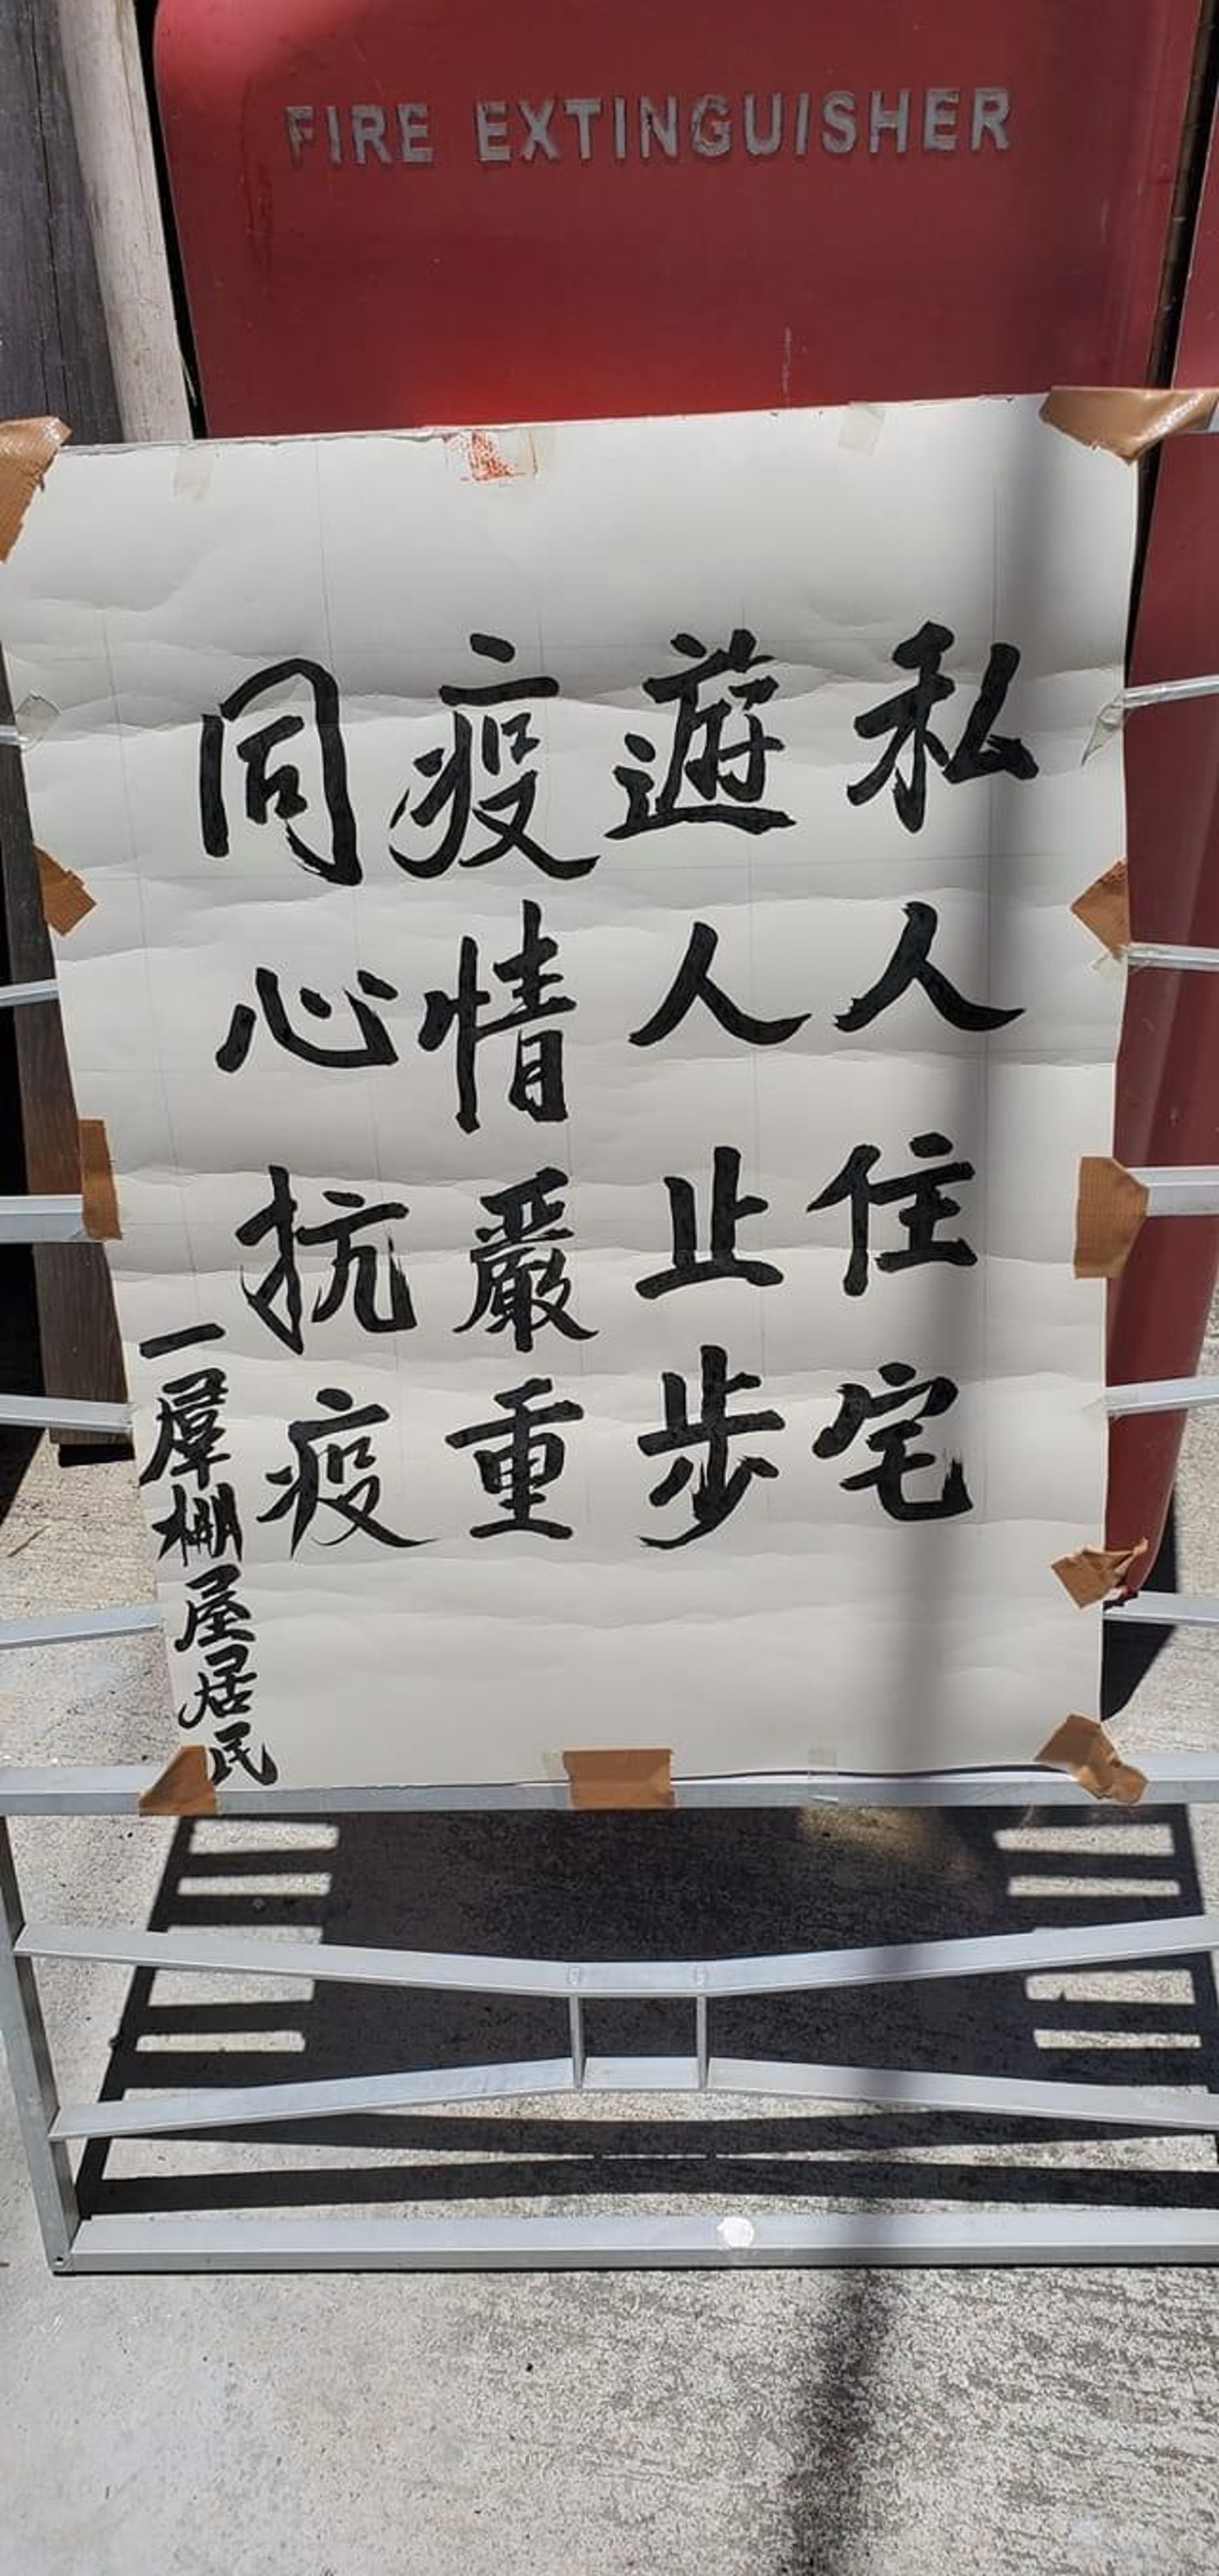 FIRE EXTINGUISHER
私人住宅
遊人止步
疫情嚴重
同心抗疫
一羣棚屋居民